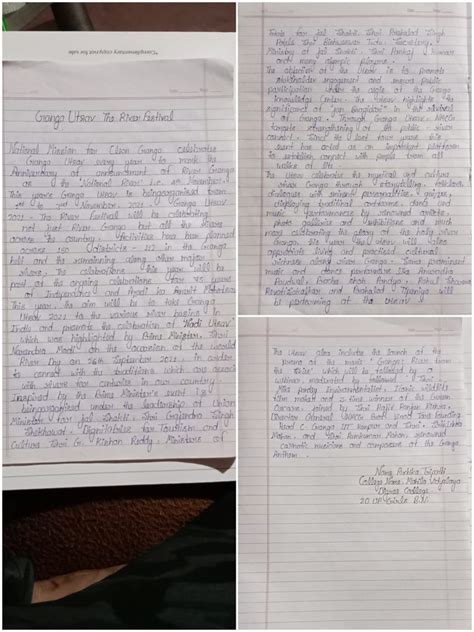 *Complementary copy not for sale
Ganga Utsav The River Festival
National Mission for Clean Ganga celebrates
Ganga Utsav every year to mark the
Anniversary of announcement of River Ganga
as the "National River" i.e. 4th November.
This year Ganga Utsav is being organised from
1st to 3rd November, 2021. Ganga Utsav
2021 - The River Festival will be celebrating
not just River Ganga but all the rivers
across the country. Activities have been planned
across 150 districts 112 in the Ganga
and the remaining along other major
rivers. The celebrations this year will be
part of the ongoing celebrations for 75 years
of Independence and Azadi ka Amrit Mahotsav
This year the aim will be to take Ganga
Utsav 2021 to the various river basins in
India and promote the celebration of "Nadi Utsav"
which was highlighted by Prime Minister, Shri
Narendra Modi on the occasion of the World
River Day on 26th September 2021 in order
to connect with the traditions which are associated
with rivers in our country.
Inspired by the Prime Minister's
being organised under the leadership of Union
Minister for Jal Shakti, Shri Gajendra Singh
Shekhawat. Dignitaries Tourism and
Culture Shri G. Kishan Reddy, Ministers of
State for Jal Shakti, Shri Prahalad Singh
Patel, Shri Bishweswar Tudu, Secretary,
Ministry of Jal Shakti, Shri Pankaj Kumar
and many olympic players.
The objective of the Utsav is to promote
stakeholder engagement and ensure public
participation under the aegis of the Ganga
Knowledge Centre. The Utsav highlights the
significance of "Jan Bhagidari" in the
of Ganga. Through Ganga Utsav, NMCG
targets strengthening of the public - river
connect. Since the last four years this
event has acted as an important platform
to establish connect with people from all
walks of life.
The Utsav celebrates the mystical and cultural
river Ganga through storytelling, folklores,
dialogue with eminent personalities, quizzes,
displaying traditional artforms, dance and
music performances by renowned artists,
photo galleries and exhibitions and much
more celebrating the glory of the holy river
Ganga. This year the Utsav will also
spiritual and cultural
richness along river Ganga. Some prominent
music and dance performers like Anuradha
Paudwal, Bickram Ghosh, Pandya, Rahul Sharma
and Prahalad Tipaniya will
be performing at the Utsav.
The Utsav also includes the launch of the
promo of the movie "Ganga: River from
the Skies" which will be followed by a
webinar moderated by
Mike Pandey, Environmentalist, Indian wildlife
film maker and 3 time winner of the Green
Oscars, joined by Shri Rajiv Ranjan Mishra,
Director General NMCG, Prof. Vinod Tare founding
head C-Ganga IIT Kanpur and Smt.
Mohan, and Shri Ramkumar Mohan, renowned
carnatic musicians and composers of the Ganga
Anthem.
Name Tripathi
College Name Mahila Vidyalaya
Degree College
20 UP Girls B.N.